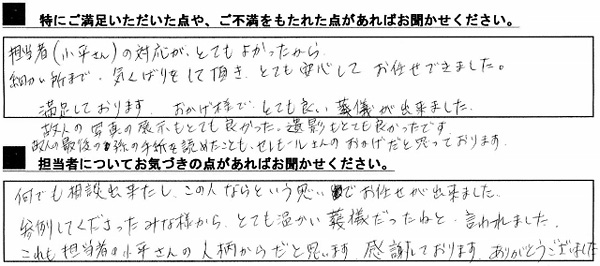 ■ 特にご満足いただいた点や、ご不満をもたれた点があればお聞かせください。
担当者(小平さん)の対応が、とてもよかったから
細かい所まで、気くばりをして頂き、とても安心して お任せできました。
満足しております おかげ様で、とても良い葬儀が出来ました。
故人の写真の展示もとても良かった。遺影もとても良かったです
故人の最後の 孫の手紙を読めたことも、セレモールさんのおかげだと思っております。
■ 担当者についてお気づきの点があればお聞かせください。
何でも相談出来たし、この人ならという思いでお任せが出来ました。
参列してくださったみな様から、とても温かい葬儀だったねと、言われました。
これも担当者の小平さんの人柄からだと思います 感謝しております。ありがとうございました